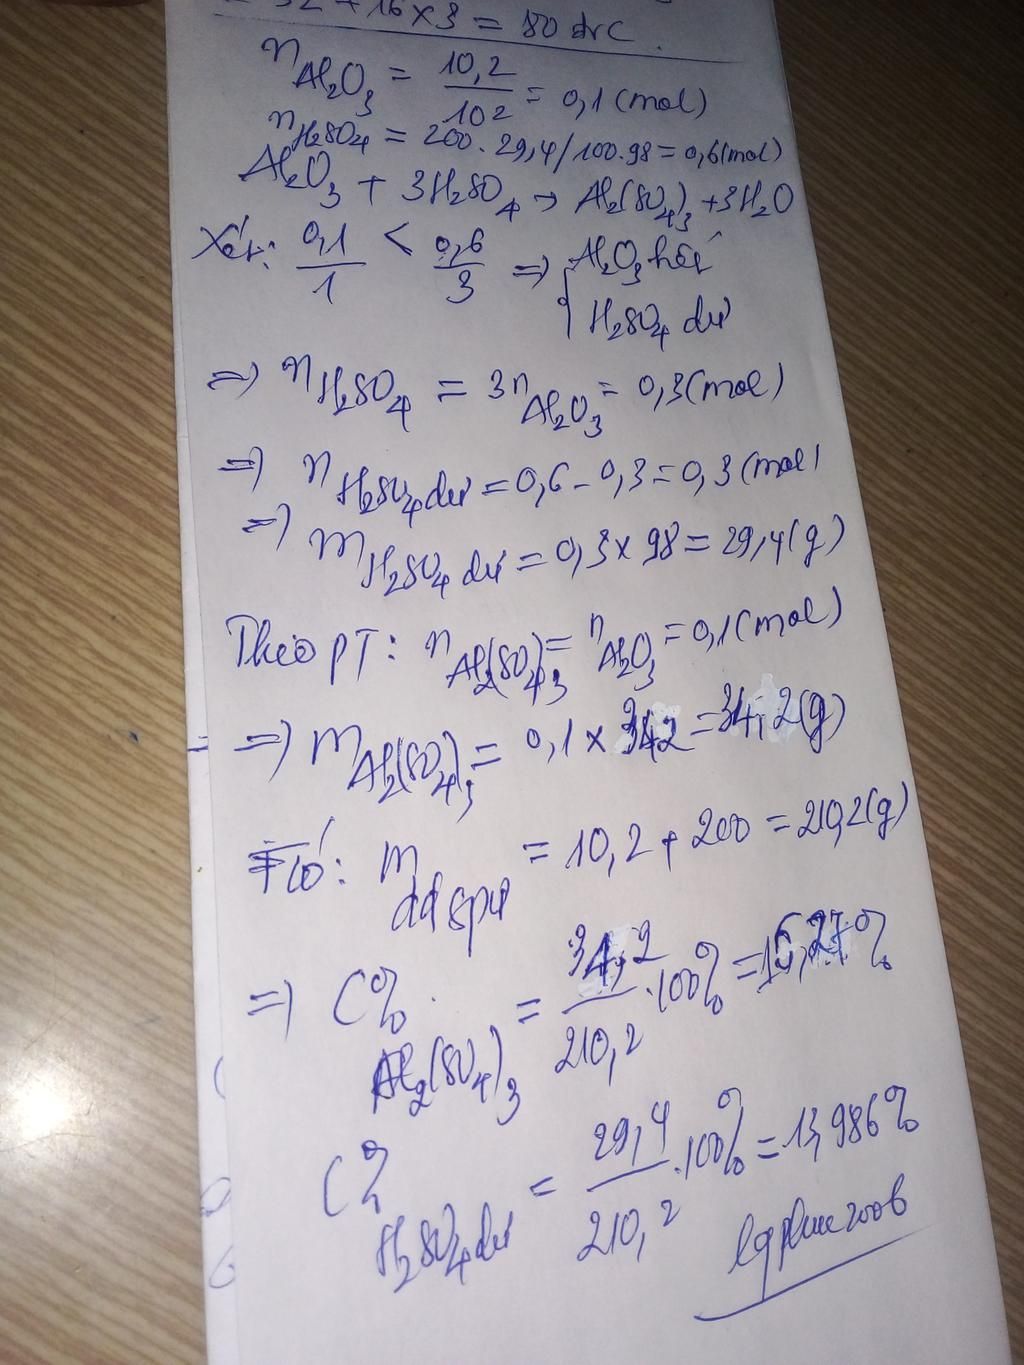 = 32 + 16 × 3 = 80 đvC.
nAl₂O₃ = 10,2/102 = 0,1 (mol)
nH₂SO₄ = 200 . 29,4/100.98 = 0,6 (mol)
Al₂O₃ + 3H₂SO₄ → Al₂(SO₄)₃ + 3H₂O
Xét: 0,1/1 < 0,6/3 => { Al₂O₃ hết
H₂SO₄ dư
=> nH₂SO₄ = 3nAl₂O₃ = 0,3 (mol)
=> nH₂SO₄ dư = 0,6 - 0,3 = 0,3 (mol)
=> mH₂SO₄ dư = 0,3 × 98 = 29,4 (g)
Theo PT: nAl₂(SO₄)₃ = nAl₂O₃ = 0,1 (mol)
=> mAl₂(SO₄)₃ = 0,1 × 342 = 34,2 (g)
Có: m dd spư = 10,2 + 200 = 210,2 (g)
=> C% Al₂(SO₄)₃ = 34,2/210,2 .100% = 16,27%
C% H₂SO₄ dư = 29,4/210,2 .100% = 13,986%